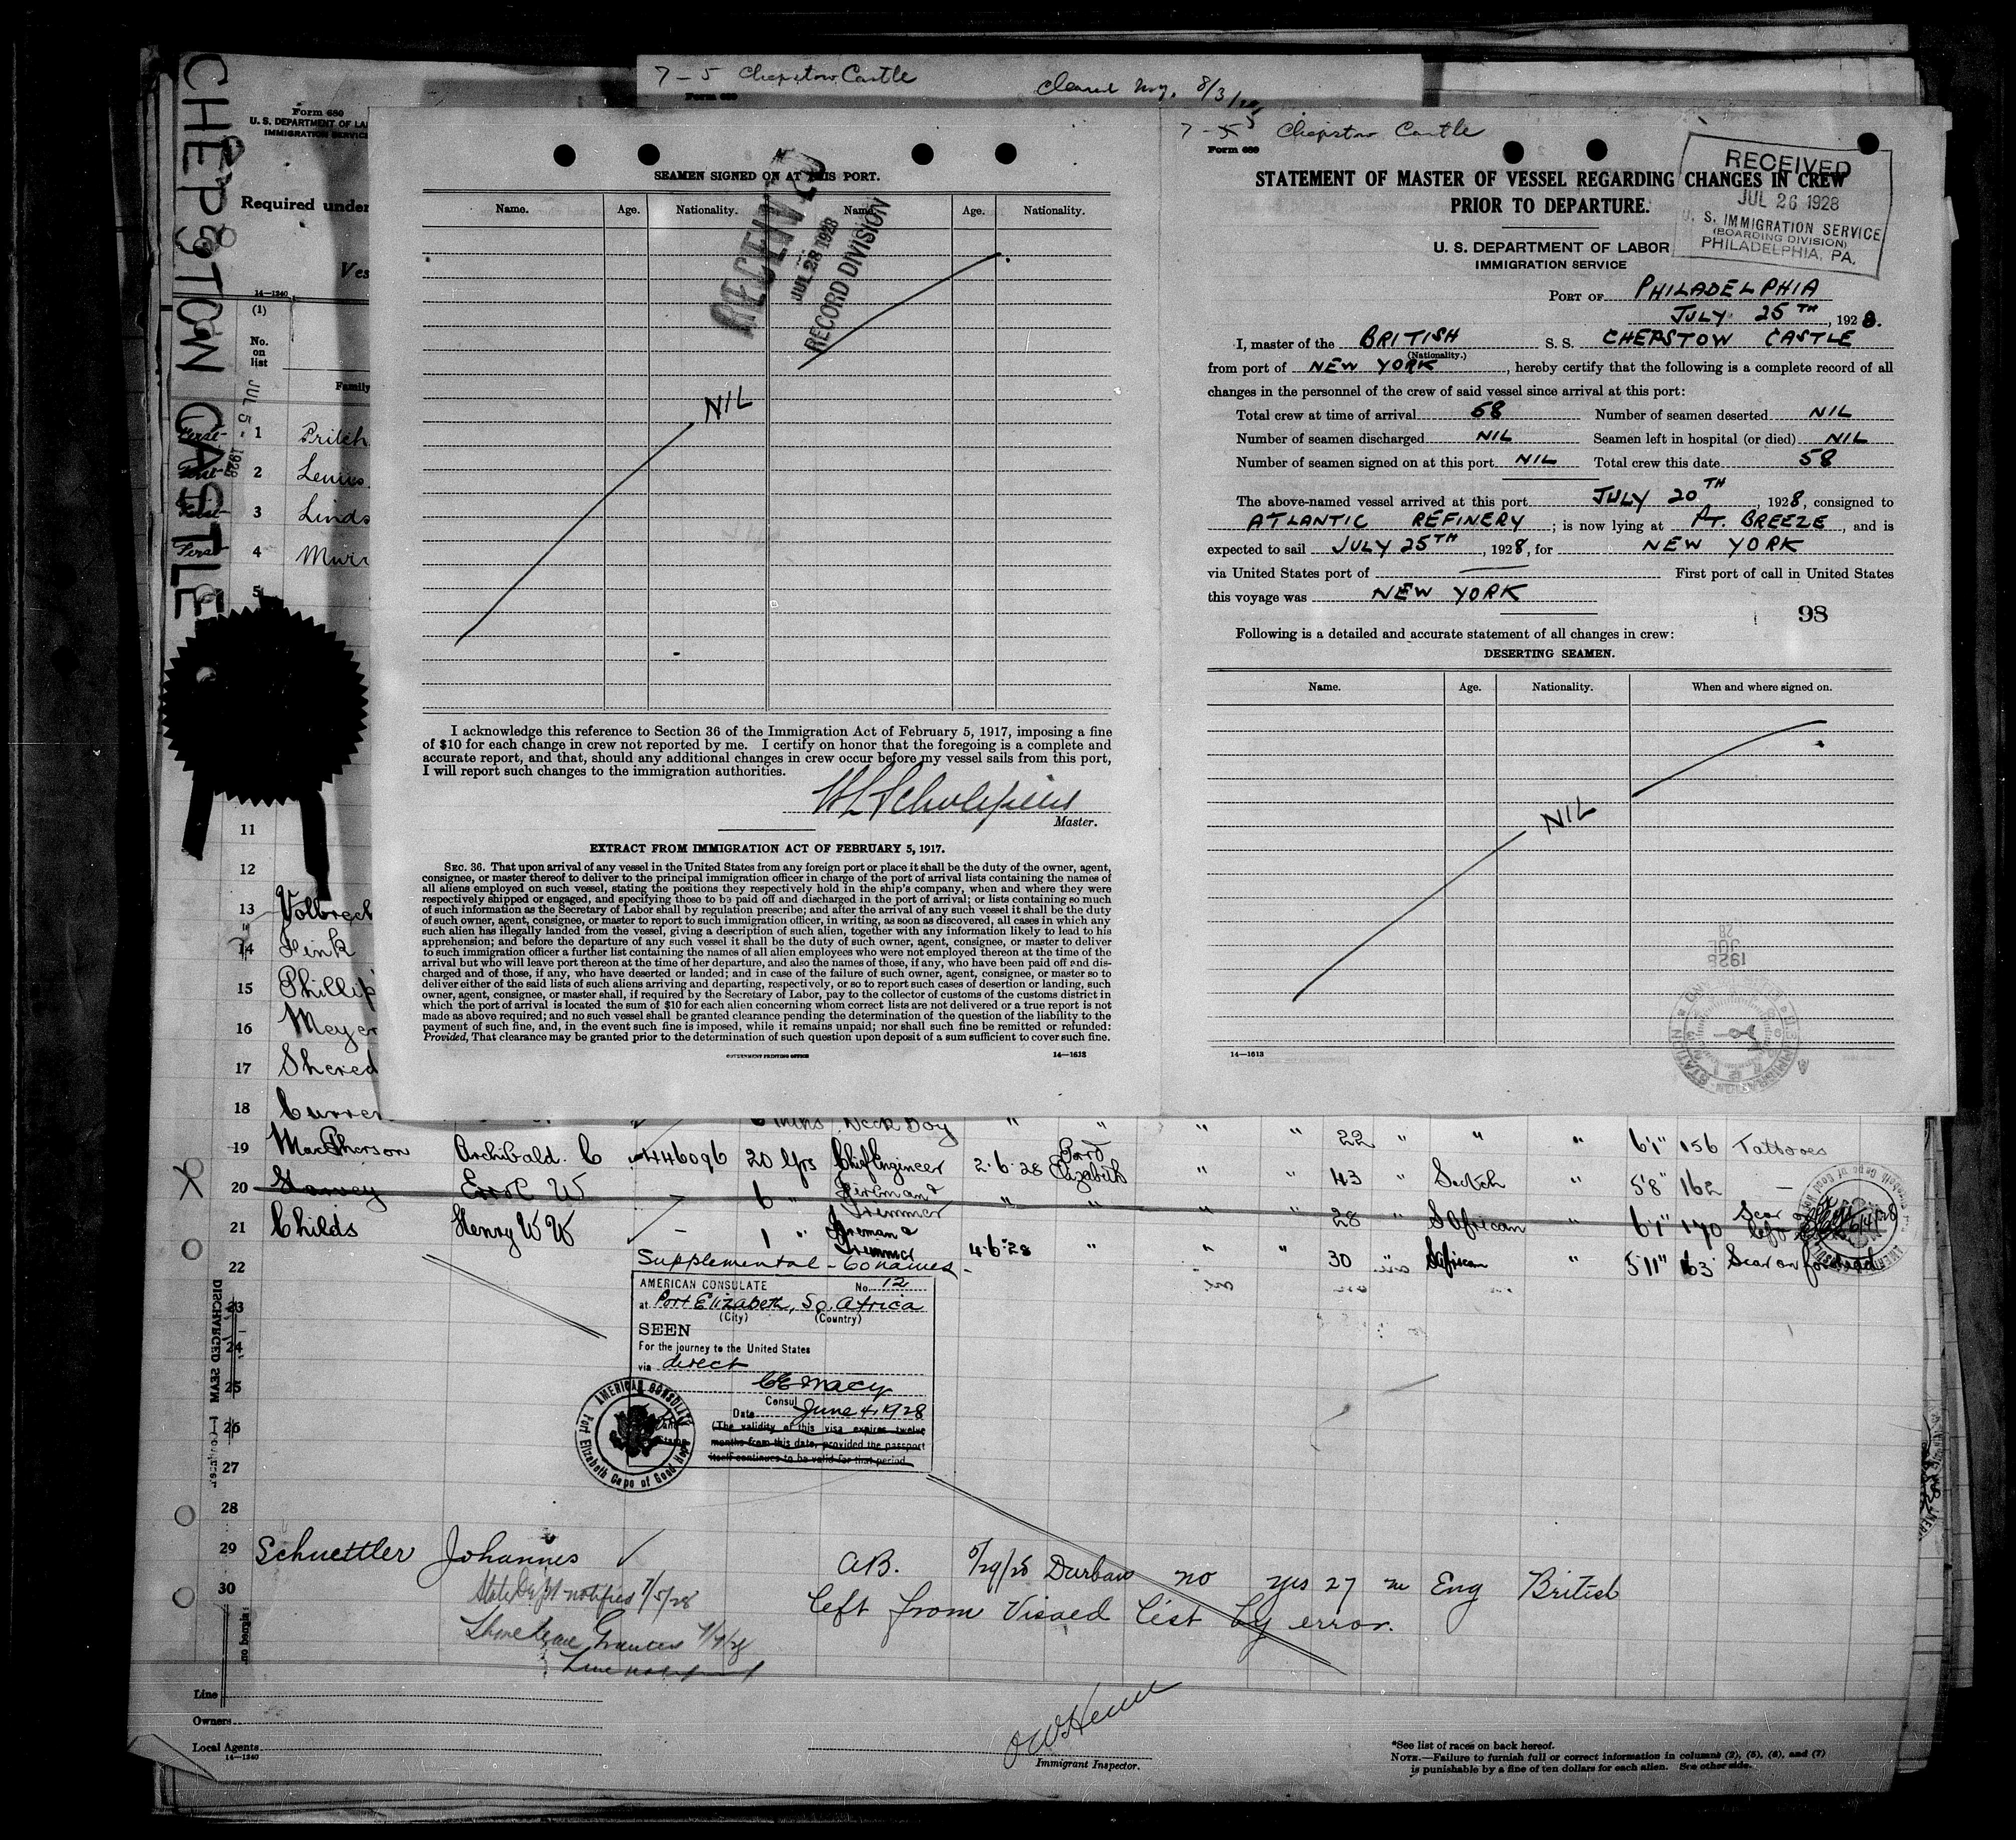 7-5 Chepstow Castle
Cleared N.Y. 8/3/28
Form 680
CHEPSTOW CASTLE
Form 680
U. S. DEPARTMENT OF LA
IMMIGRATION SERVICE
Required under
Ves
14—1240
(1)
No.
on
list
Family
JUL 5 - 1928
1 Pritch
2 Lewis
3 Linds
4 Murr
5
11
12
13 Volbrech
14 Fink
15 Phillip
16 Meyer
17 Shered
18 Curren
SEAMEN SIGNED ON AT THIS PORT.
Name. Age. Nationality. Name. Age. Nationality.
RECEIVED
JUL 28 1928
RECORD DIVISION
NIL
I acknowledge this reference to Section 36 of the Immigration Act of February 5, 1917, imposing a fine
of $10 for each change in crew not reported by me. I certify on honor that the foregoing is a complete and
accurate report, and that, should any additional changes in crew occur before my vessel sails from this port,
I will report such changes to the immigration authorities.
Master.
EXTRACT FROM IMMIGRATION ACT OF FEBRUARY 5, 1917.
SEC. 36. That upon arrival of any vessel in the United States from any foreign port or place it shall be the duty of the owner, agent,
consignee, or master thereof to deliver to the principal immigration officer in charge of the port of arrival lists containing the names of
all aliens employed on such vessel, stating the positions they respectively hold in the ship's company, when and where they were
respectively shipped or engaged, and specifying those to be paid off and discharged in the port of arrival; or lists containing so much
of such information as the Secretary of Labor shall by regulation prescribe; and after the arrival of any such vessel it shall be the duty
of such owner, agent, consignee, or master to report to such immigration officer, in writing, as soon as discovered, all cases in which any
such alien has illegally landed from the vessel, giving a description of such alien, together with any information likely to lead to his
apprehension; and before the departure of any such vessel it shall be the duty of such owner, agent, consignee, or master to deliver
to such immigration officer a further list containing the names of all alien employees who were not employed thereon at the time of the
arrival but who will leave port thereon at the time of her departure, and also the names of those, if any, who have been paid off and dis-
charged and of those, if any, who have deserted or landed; and in case of the failure of such owner, agent, consignee, or master so to
deliver either of the said lists of such aliens arriving and departing, respectively, or so to report such cases of desertion or landing, such
owner, agent, consignee, or master shall, if required by the Secretary of Labor, pay to the collector of customs of the customs district in
which the port of arrival is located the sum of $10 for each alien concerning whom correct lists are not delivered or a true report is not
made as above required; and no such vessel shall be granted clearance pending the determination of the question of the liability to the
payment of such fine, and, in the event such fine is imposed, while it remains unpaid; nor shall such fine be remitted or refunded:
Provided, That clearance may be granted prior to the determination of such question upon deposit of a sum sufficient to cover such fine.
GOVERNMENT PRINTING OFFICE 14—1613
7-5 Chepstow Castle
Form 680
STATEMENT OF MASTER OF VESSEL REGARDING CHANGES IN CREW
PRIOR TO DEPARTURE.
RECEIVED
JUL 26 1928
U. S. IMMIGRATION SERVICE
(BOARDING DIVISION)
PHILADELPHIA, PA.
U. S. DEPARTMENT OF LABOR
IMMIGRATION SERVICE
PORT OF PHILADELPHIA
JULY 25TH, 1928.
I, master of the BRITISH S. S. CHEPSTOW CASTLE
(Nationality.)
from port of NEW YORK, hereby certify that the following is a complete record of all
changes in the personnel of the crew of said vessel since arrival at this port:
Total crew at time of arrival 58 Number of seamen deserted NIL
Number of seamen discharged NIL Seamen left in hospital (or died) NIL
Number of seamen signed on at this port NIL Total crew this date 58
The above-named vessel arrived at this port JULY 20TH, 1928, consigned to
ATLANTIC REFINERY; is now lying at PT. BREEZE, and is
expected to sail JULY 25TH, 1928, for NEW YORK
via United States port of First port of call in United States
this voyage was NEW YORK
98
Following is a detailed and accurate statement of all changes in crew:
DESERTING SEAMEN.
Name. Age. Nationality. When and where signed on.
NIL
14—1613
6 mths Deck Boy " " " " 22 " " " 6'1" 156 Tattooes
19 MacPherson Archibald. C 446096 20 Yrs Chief Engineer 2·6·28 Port Elizabeth " " 43 " Scotch " 5'8" 162 —
20 Garvey Errol W 6 " Fireman & Trimmer " " " " 28 " S African " 6'1" 170 Scar
21 Childs Henry W W - 1 " Fireman & Trimmer 4·6·28 " " " 30 " S African " 5'11" 163 Scar on forehead
22
Supplemental - 60 names -
AMERICAN CONSULATE No. 12
at Port Elizabeth, So. Africa
(City) (Country)
SEEN
For the journey to the United States
via direct
CE Macy
Consul
Date June 4, 1928
(The validity of this visa expires twelve
months from this date, provided the passport
itself continues to be valid for that period.
AMERICAN CONSULATE
Port Elizabeth Cape of Good Hope
23
24
25
26
27
28
DISCHARGED SEAM
29 Schuettler Johannes AB. 5/29/28 Durban no yes 27 m Eng British
30 State Dept notified 7/5/28 left from Visaed list by error.
Shore leave Granted
Line
Owners
Local Agents
14—1240
Immigrant Inspector.
*See list of races on back hereof.
NOTE.—Failure to furnish full or correct information in columns (2), (5), (6), and (7)
is punishable by a fine of ten dollars for each alien. See other side.